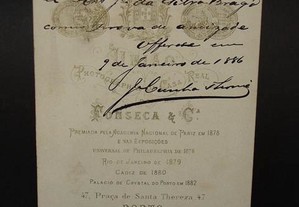 da Silva Braga
como prova de amizade
Offerece em
9 de Janeiro de 1886
J. Cunha
FONSECA & Cª
PREMIADA PELA ACADEMIA NACIONAL DE PARIZ EM 1878
E NAS EXPOSIÇÕES
UNIVERSAL DE PHILADELPHIA EM 1876
RIO DE JANEIRO DE 1879
CADIZ DE 1880
PALACIO DE CRYSTAL DO PORTO EM 1882
47, Praça de Santa Thereza 47
PORTO